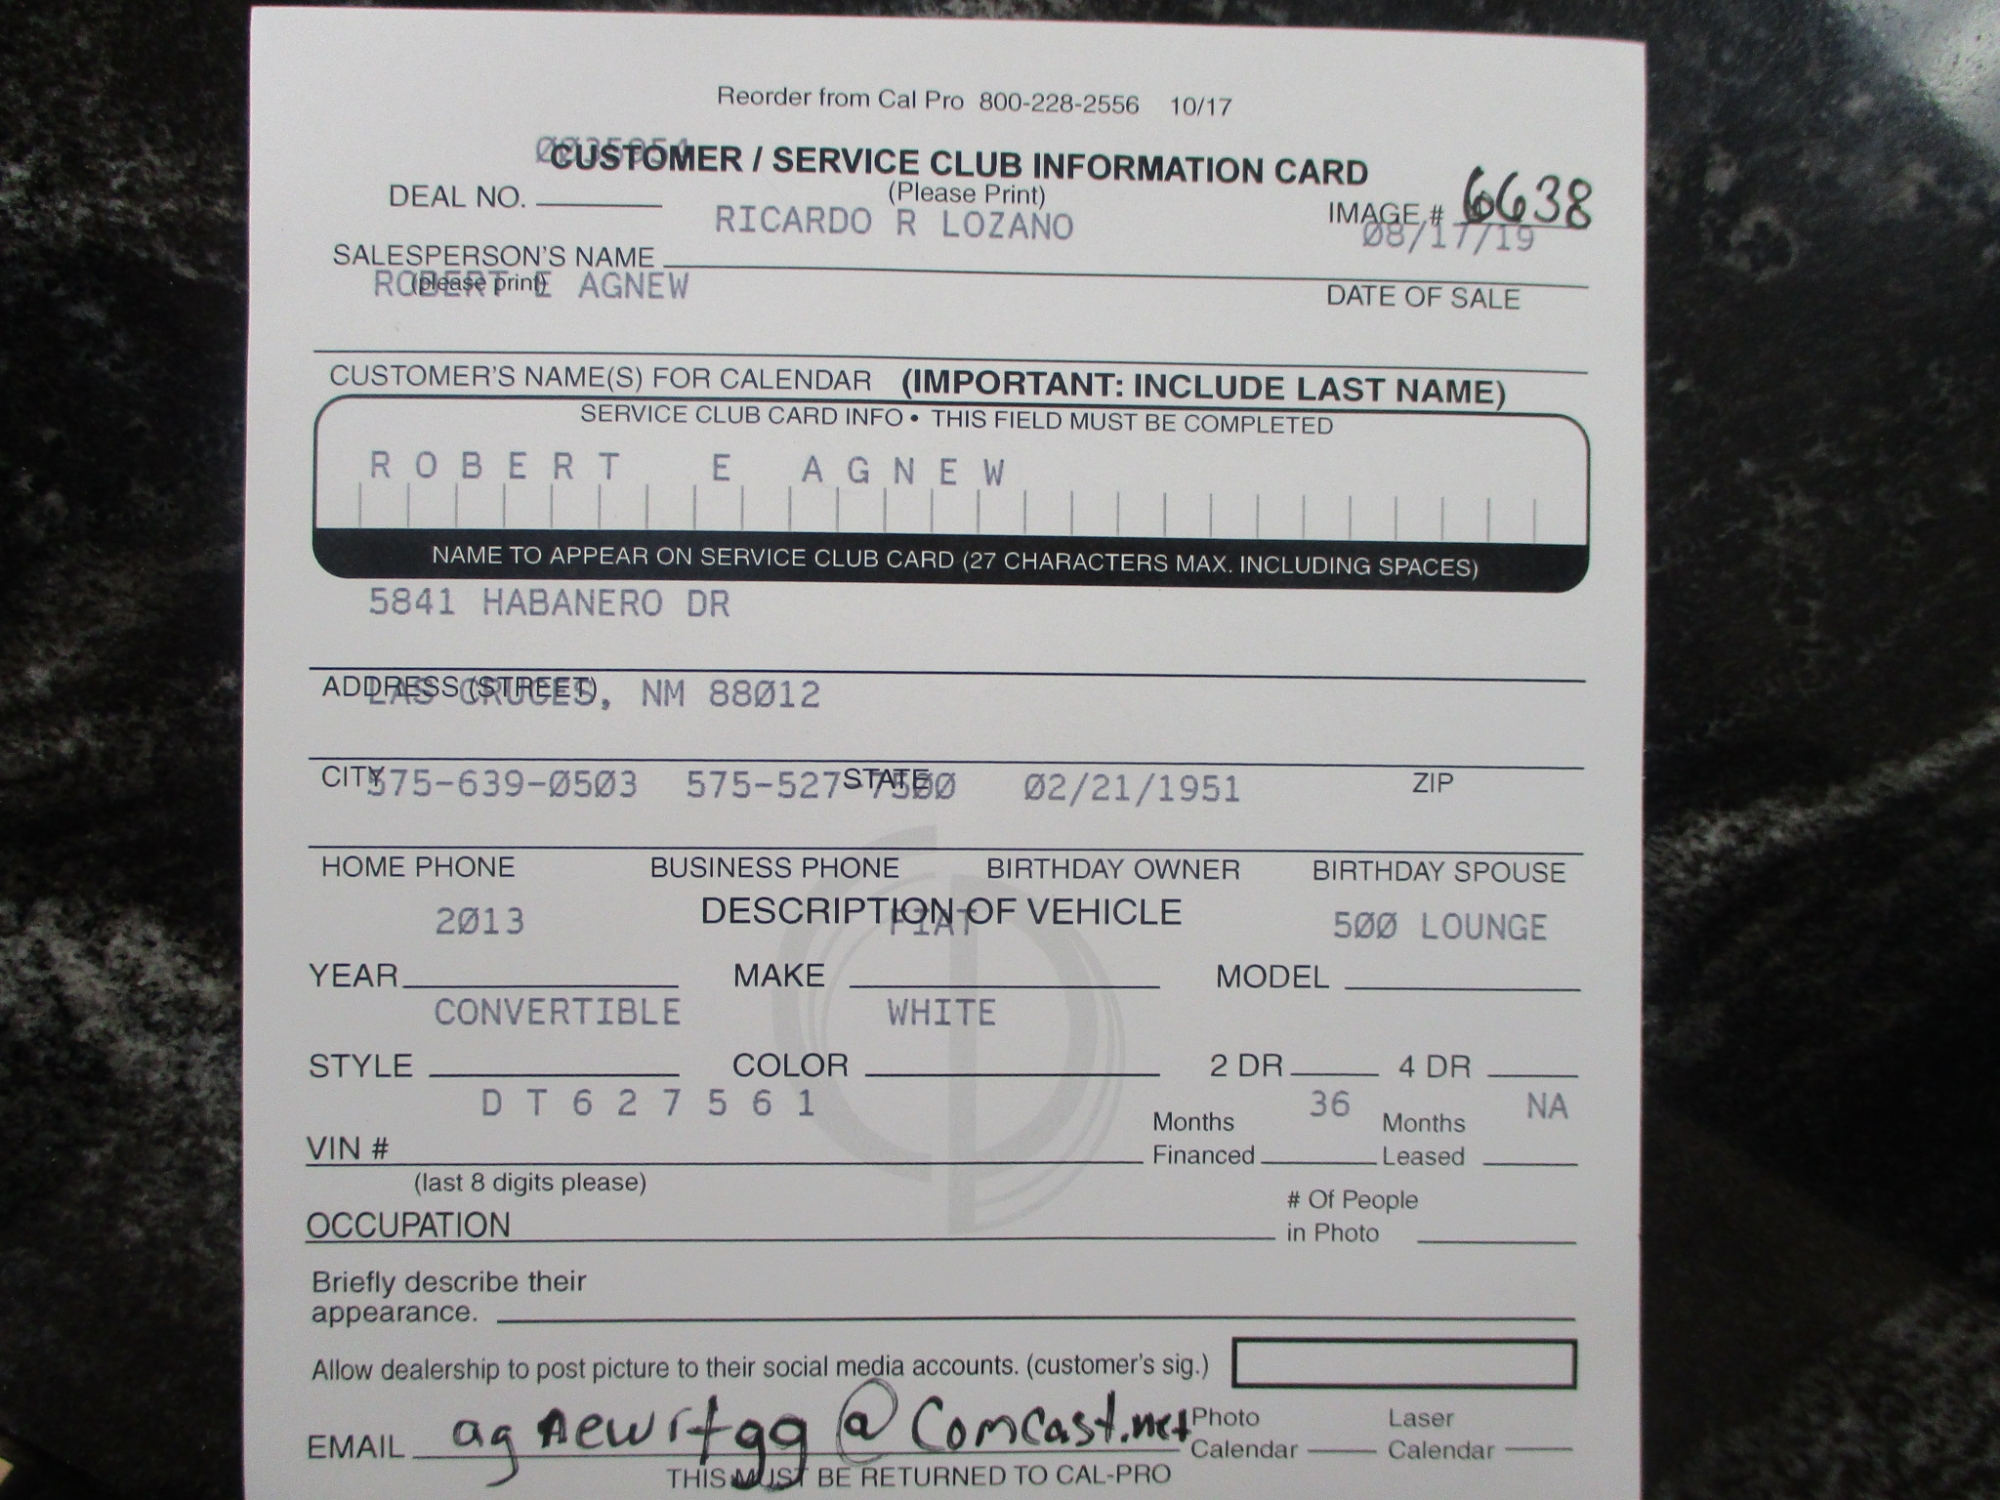 Reorder from Cal Pro 800-228-2556 10/17
CUSTOMER / SERVICE CLUB INFORMATION CARD
(Please Print)
DEAL NO.
IMAGE # 6638
RICARDO R LOZANO
08/17/19
SALESPERSON'S NAME
(please print)
ROBERT E AGNEW
DATE OF SALE
CUSTOMER'S NAME(S) FOR CALENDAR (IMPORTANT: INCLUDE LAST NAME)
SERVICE CLUB CARD INFO • THIS FIELD MUST BE COMPLETED
ROBERT E AGNEW
NAME TO APPEAR ON SERVICE CLUB CARD (27 CHARACTERS MAX. INCLUDING SPACES)
5841 HABANERO DR
ADDRESS (STREET)
LAS CRUCES, NM 88012
CITY STATE ZIP
575-639-0503 575-527-7500 02/21/1951
HOME PHONE BUSINESS PHONE BIRTHDAY OWNER BIRTHDAY SPOUSE
DESCRIPTION OF VEHICLE
2013 FIAT 500 LOUNGE
YEAR MAKE MODEL
CONVERTIBLE WHITE
STYLE COLOR 2 DR 4 DR
DT627561 36 NA
VIN # Months Financed Months Leased
(last 8 digits please)
OCCUPATION # Of People in Photo
Briefly describe their
appearance.
Allow dealership to post picture to their social media accounts. (customer's sig.)
EMAIL Photo Calendar Laser Calendar
THIS MUST BE RETURNED TO CAL-PRO